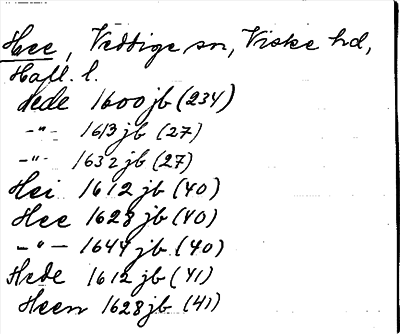 Hee, Veddige sn, Viske hd,
Hall. l.
Hede 1600 jb (234)
-"- 1613 jb (27)
-"- 1632 jb (27)
Hei 1612 jb (40)
Hee 1628 jb (40)
-"- 1644 jb (40)
Hede 1612 jb (41)
Heen 1628 jb (41)